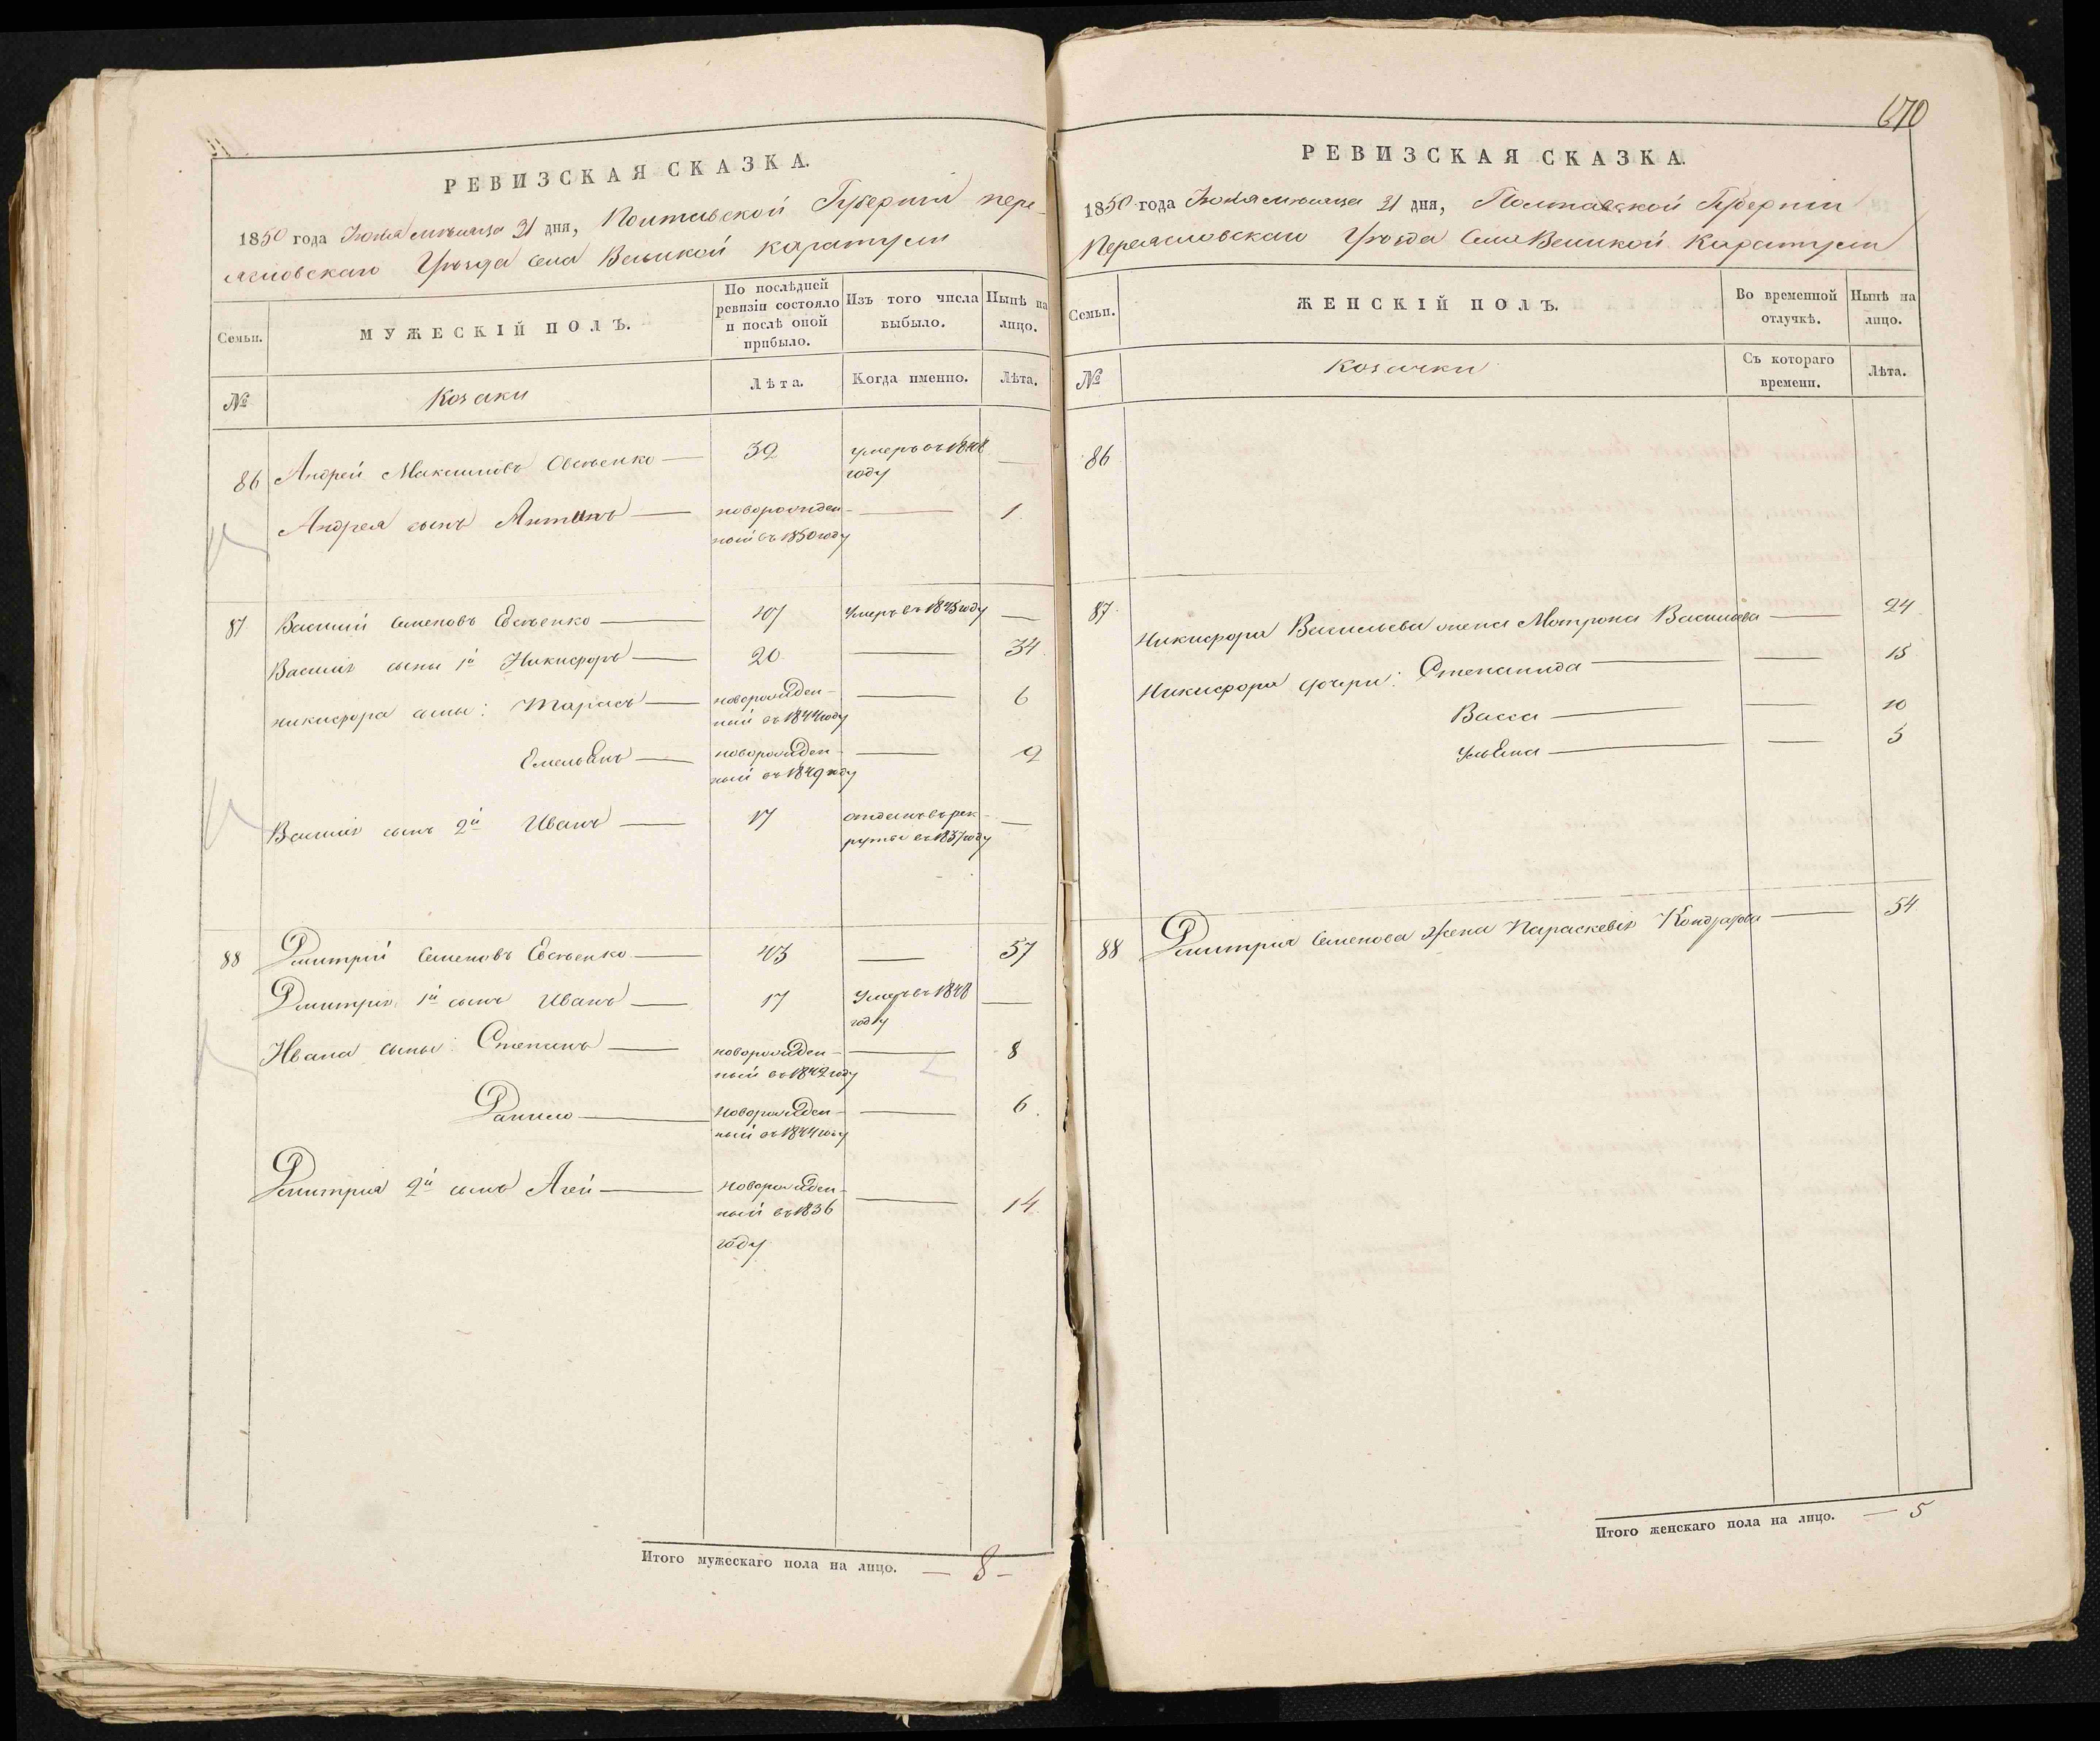 РЕВИЗСКАЯ СКАЗКА.
1850 года Июня мѣсяца 21 дня, Полтавской Губерніи Пере-
яславскаго Уѣзда Села Великой Каратули
Семьи. МУЖЕСКІЙ ПОЛЪ. По послѣдней ревизіи состояло и послѣ оной прибыло. Изъ того числа выбыло. Нынѣ на лицо.
№ Козаки Лѣта. Когда именно. Лѣта.
86 Андрей Максимовъ Овсѣенко — 32 умеръ въ 1848 —
году
Андрея сынъ Антинъ — новорожден- — 1
ный въ 1850 году
87 Василий Семеновъ Евсѣенко — 47 Умеръ въ 1845 году —
Василія сыны 1й Никифоръ — 20 — 34
Никифора сыны: Тарасъ — новорожден- — 6
ный въ 1844 году
Емельянъ — новорожден- — 2
ный въ 1849 году
Василія сынъ 2й Иванъ — 17 отданъ въ рек- —
руты въ 1837 году
88 Дмитрій Семеновъ Евсѣенко — 43 — 57
Дмитрія 1й сынъ Иванъ — 17 Умеръ въ 1848 —
году
Ивана сыны: Степанъ — новорожден- — 8
ный въ 1842 году
Данило — новорожден- — 6
ный въ 1844 году
Дмитрия 2й сынъ Агей — новорожден- — 14
ный въ 1836
году
Итого мужескаго пола на лицо. — 8 —
670
РЕВИЗСКАЯ СКАЗКА.
1850 года Июня мѣсяца 21 дня, Полтавской Губерніи
Переясловскаго Уѣзда Села Великой Каратули
Семьи. ЖЕНСКІЙ ПОЛЪ. Во временной отлучкѣ. Нынѣ на лицо.
№ Козачки Съ котораго времени. Лѣта.
86
87 Никифора Васильева жена Мотрона Васильева — 24
Никифора дочери: Степанида — — 15
Васса — — 10
Ульяна — — 5
88 Дмитрия Семенова Жена Параскевія Кондратова — 54
Итого женскаго пола на лицо. — 5